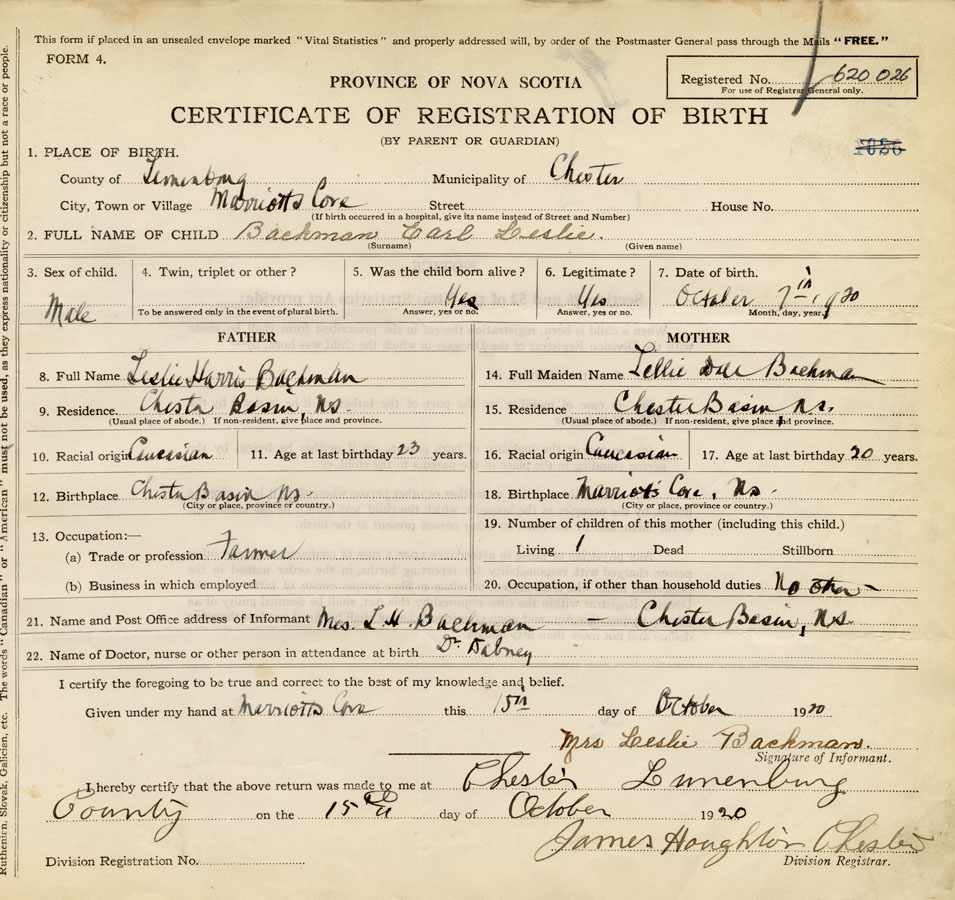 This form if placed in an unsealed envelope marked "Vital Statistics" and properly addressed will, by order of the Postmaster General pass through the Mails "FREE."
FORM 4.
PROVINCE OF NOVA SCOTIA
Registered No. 620026
For use of Registrar General only.
CERTIFICATE OF REGISTRATION OF BIRTH
(BY PARENT OR GUARDIAN)
1. PLACE OF BIRTH.
County of Lunenburg Municipality of Chester
City, Town or Village Marriotts Cove Street House No.
(If birth occurred in a hospital, give its name instead of Street and Number)
2. FULL NAME OF CHILD Backman Earl Leslie.
(Surname) (Given name)
3. Sex of child. 4. Twin, triplet or other? 5. Was the child born alive? 6. Legitimate? 7. Date of birth.
Male Yes Yes October 7th 1920
To be answered only in the event of plural birth. Answer, yes or no. Answer, yes or no. Month, day, year.
FATHER MOTHER
8. Full Name Leslie Harris Backman 14. Full Maiden Name Backman
9. Residence. Chester Basin, Ns. 15. Residence Chester Basin Ns.
(Usual place of abode.) If non-resident, give place and province. (Usual place of abode.) If non-resident, give place and province.
10. Racial origin Caucasian 11. Age at last birthday 23 years. 16. Racial origin Caucasian 17. Age at last birthday 20 years.
12. Birthplace Chester Basin Ns. 18. Birthplace Marriots Cove, Ns.
(City or place, province or country.) (City or place, province or country.)
13. Occupation:— 19. Number of children of this mother (including this child.)
(a) Trade or profession Farmer Living 1 Dead Stillborn
(b) Business in which employed 20. Occupation, if other than household duties No other
21. Name and Post Office address of Informant Mrs. L. H. Backman — Chester Basin, N.S.
22. Name of Doctor, nurse or other person in attendance at birth Dr Dabney
I certify the foregoing to be true and correct to the best of my knowledge and belief.
Given under my hand at Marriotts Cove this 15th day of October 1920
Mrs Leslie Backman.
Signature of Informant.
I hereby certify that the above return was made to me at Chester Lunenburg
County on the 15th day of October 1920
James Houghton Chester
Division Registration No. Division Registrar.
Ruthenien, Slovak, Galician, etc. The words "Canadian" or "American" must not be used, as they express nationality or citizenship but not a race or people.